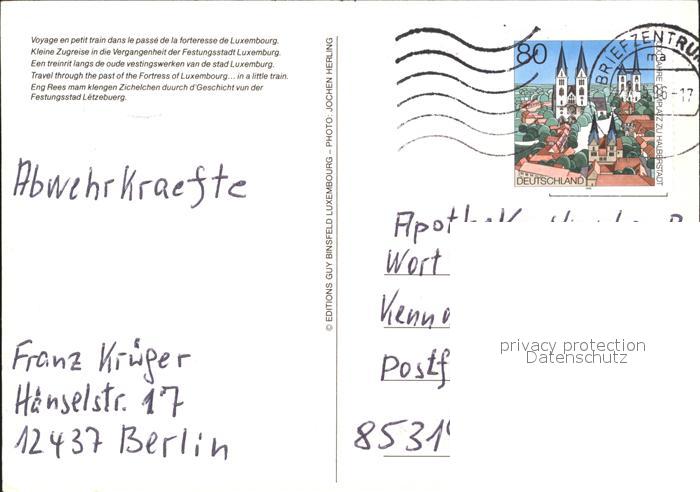 Voyage en petit train dans le passé de la forteresse de Luxembourg.
Kleine Zugreise in die Vergangenheit der Festungsstadt Luxemburg.
Een treinrit langs de oude vestingswerken van de stad Luxemburg.
Travel through the past of the Fortress of Luxembourg... in a little train.
Eng Rees mam klengen Zichelchen duurch d'Geschicht vun der
Festungsstad Lëtzebuerg.
Abwehrkraefte
Franz Krüger
Hänselstr. 17
12437 Berlin
© EDITIONS GUY BINSFELD LUXEMBOURG – PHOTO: JOCHEN HERLING
80
DEUTSCHLAND
HALBERSTADT
BRIEFZENTRUM
ma
-17
Wort
Postf
8531
privacy protection
Datenschutz